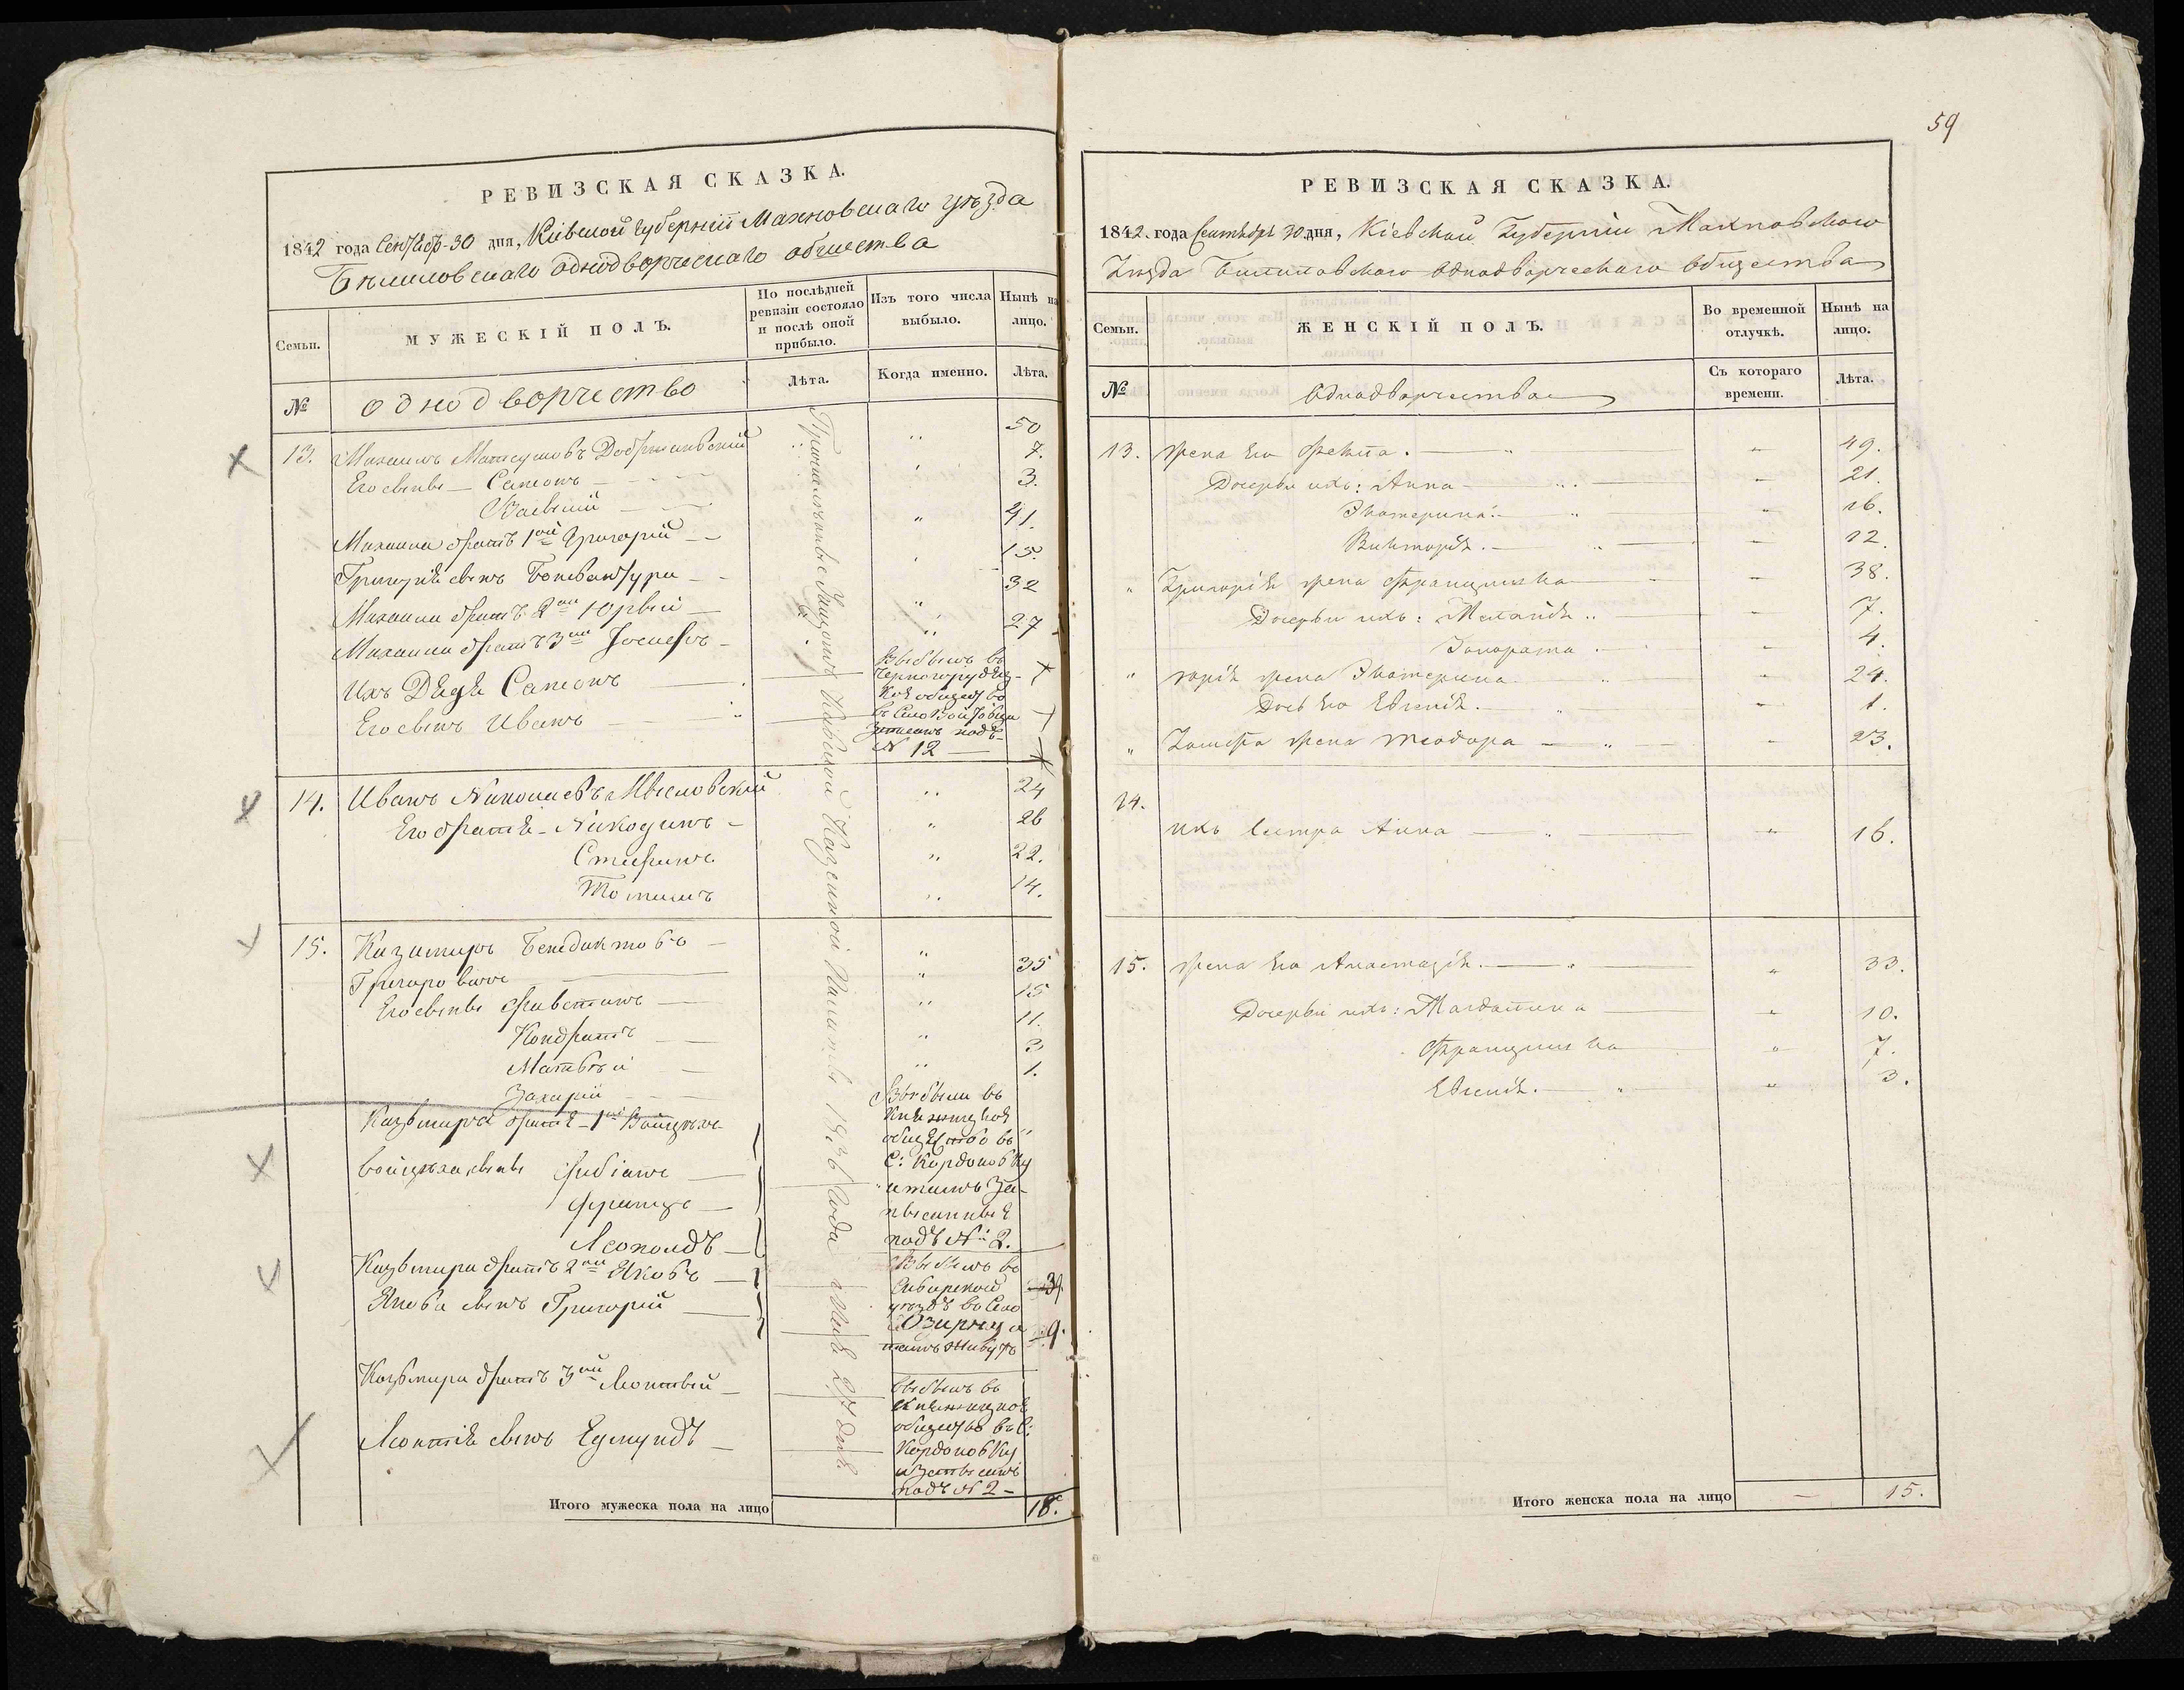 59
РЕВИЗСКАЯ СКАЗКА.
1842 года Сентябр. 30 дня, Кіевской Губерніи Махновскаго уѣзда
Бѣлиловскаго однодворческаго общества
Семьи.
МУЖЕСКІЙ ПОЛЪ.
По послѣдней ревизіи состояло и послѣ оной прибыло.
Изъ того числа выбыло.
Нынѣ на лицо.
№
однодворчество
Лѣта.
Когда именно.
Лѣта.
13. Михаилъ Матеушовъ 50
Его сыны — Самсонъ 7.
Василій 3.
Михаила братъ 1ой Григорій 41.
Григорія сынъ Бонвентура 15.
Михаила братъ 2ой Юрый 32
Михаила братъ 3ой Іосифъ 27
Ихъ Дядя Самсонъ
Его сынъ Иванъ
Выбылъ въ
общество
въ Село
записанъ подъ
N 12
14. Иванъ Николаевъ Мысловскій 24
Его братья — Никодимъ 26
Стефанъ 22.
14.
15. Казимиръ Бенедиктовъ
Григоровичъ 35
Его сыны 15
Кондратъ 11.
Матвѣй 3
Захарій 1.
Казимира братъ — 1ой Войцѣхъ
Войцѣха сыны Фабіанъ
Францъ
Леопольдъ
Выбыли въ
общество въ
С: Кордоновку
и тамъ За-
писанные
подъ № 2.
Казимира братъ 2ой Яковъ 39
Якова сынъ Григорій 9.
Выбылъ въ
уѣздъ въ Село
Озирну и
тамъ живутъ
Казимира братъ 3ой Леонтій
Леонтія сынъ Едмундъ
выбылъ въ
общество въ С:
Кордоновку
и записанъ
подъ N 2 —
Казенной Палаты 1836 года Іюля 27 дня.
Итого мужеска пола на лицо 18.
РЕВИЗСКАЯ СКАЗКА.
1842. года Сентябрь 30 дня, Кіевской Губерніи Махновского
Уѣзда Билиловского Однодворческого Общества
Семьи.
ЖЕНСКІЙ ПОЛЪ.
Во временной отлучкѣ.
Нынѣ на лицо.
№
Однодворчества
Съ котораго времени.
Лѣта.
13. жена Его Фекла. 49.
Дочерьи ихъ: Анна 21.
Экатерина. 16.
Викторія. 12.
" Григорія жена Францишка 38.
Дочерьи ихъ: Меланія 7.
Гонората 4.
" Юрія жена Экатерина 24.
Дочь Его Евгенія. 1.
" жена Теодора 23.
14.
ихъ Сестра Анна 16.
15. жена Его Анастазія. 33.
Дочерьи ихъ: Магдалина 10.
Францишка 7.
Евгенія. 3.
Итого женска пола на лицо — 15.